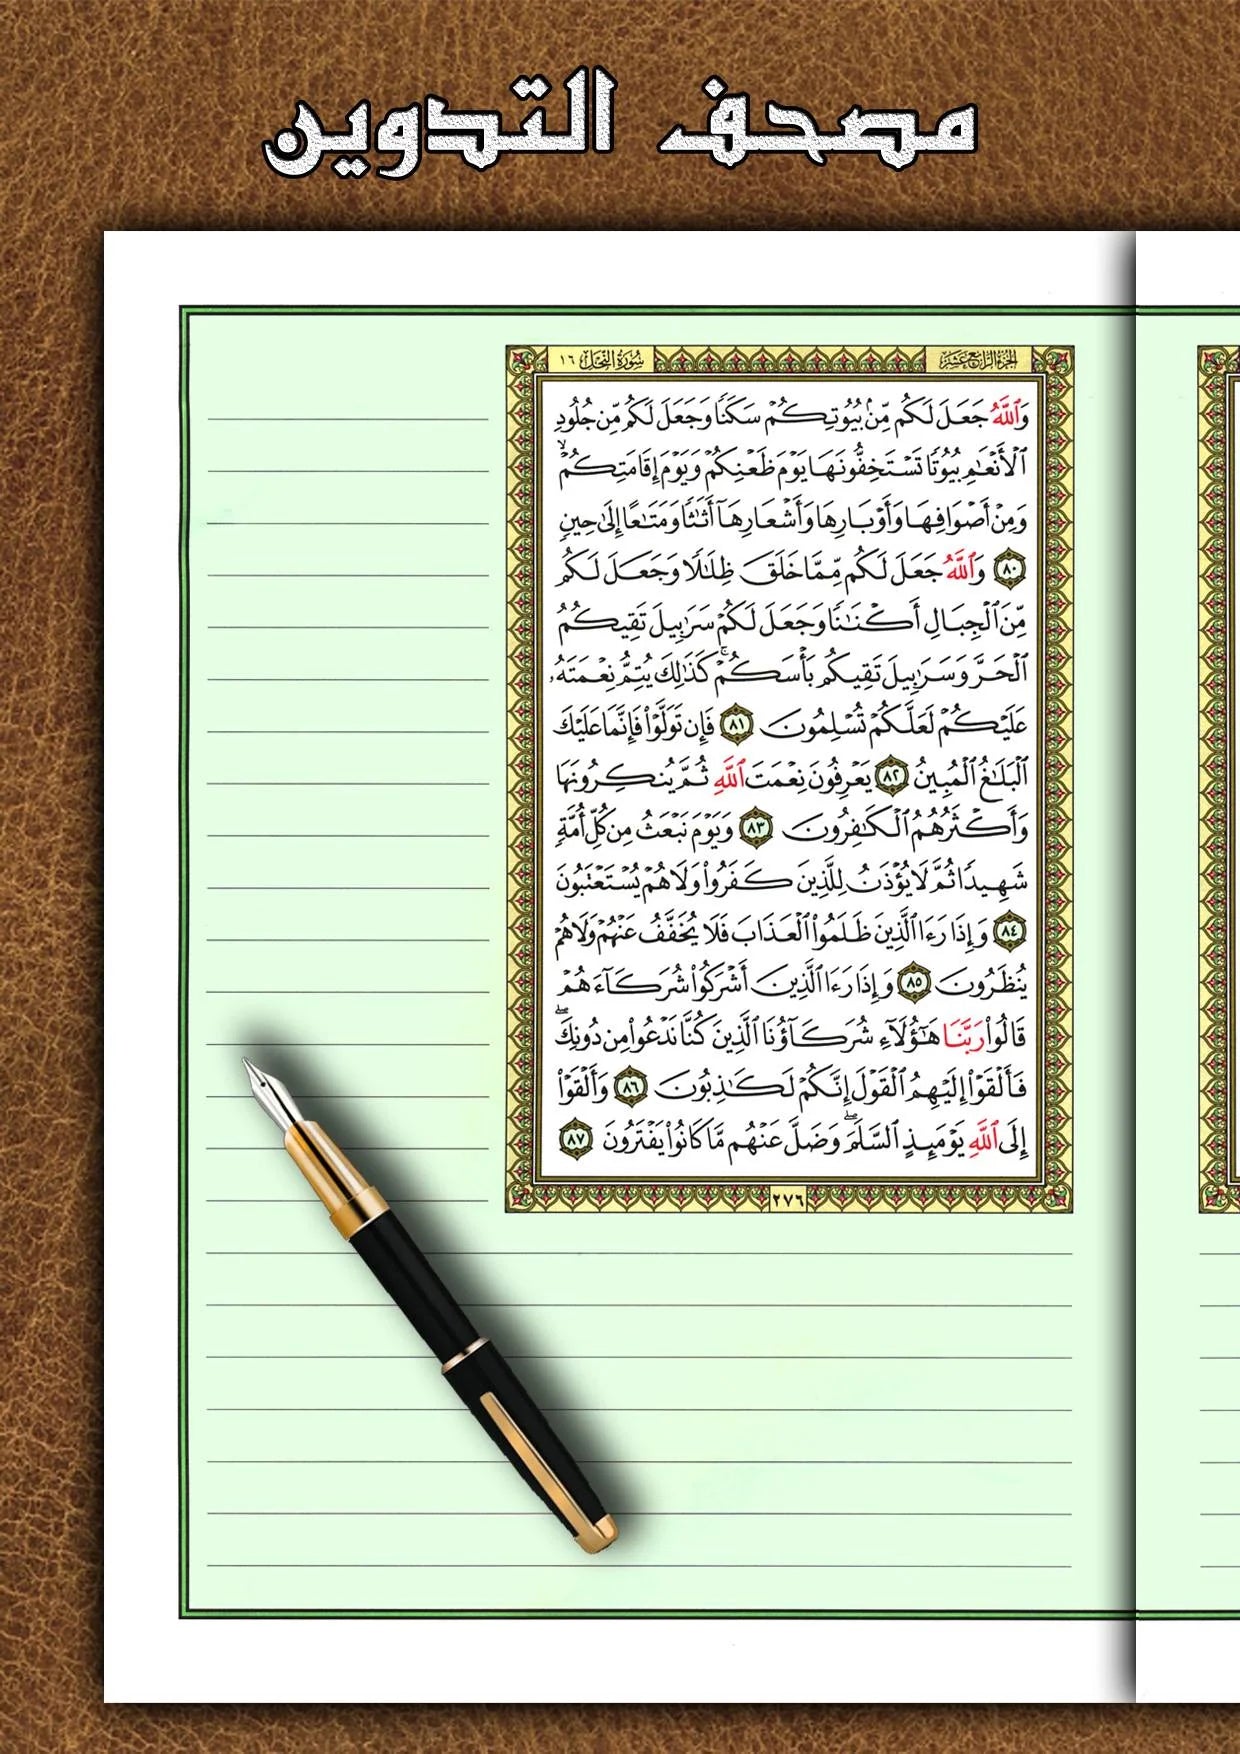 مصحف التدوين
الجزء الرابع عشر
سورة النحل ١٦
وَٱللَّهُ جَعَلَ لَكُم مِّنۢ بُيُوتِكُمْ سَكَنًا وَجَعَلَ لَكُم مِّن جُلُودِ
ٱلْأَنْعَٰمِ بُيُوتًا تَسْتَخِفُّونَهَا يَوْمَ ظَعْنِكُمْ وَيَوْمَ إِقَامَتِكُمْ ۙ
وَمِنْ أَصْوَافِهَا وَأَوْبَارِهَا وَأَشْعَارِهَآ أَثَٰثًا وَمَتَٰعًا إِلَىٰ حِينٍ
٨٠ وَٱللَّهُ جَعَلَ لَكُم مِّمَّا خَلَقَ ظِلَٰلًا وَجَعَلَ لَكُم
مِّنَ ٱلْجِبَالِ أَكْنَٰنًا وَجَعَلَ لَكُمْ سَرَٰبِيلَ تَقِيكُمُ
ٱلْحَرَّ وَسَرَٰبِيلَ تَقِيكُم بَأْسَكُمْ ۚ كَذَٰلِكَ يُتِمُّ نِعْمَتَهُۥ
عَلَيْكُمْ لَعَلَّكُمْ تُسْلِمُونَ ٨١ فَإِن تَوَلَّوْا۟ فَإِنَّمَا عَلَيْكَ
ٱلْبَلَٰغُ ٱلْمُبِينُ ٨٢ يَعْرِفُونَ نِعْمَتَ ٱللَّهِ ثُمَّ يُنكِرُونَهَا
وَأَكْثَرُهُمُ ٱلْكَٰفِرُونَ ٨٣ وَيَوْمَ نَبْعَثُ مِن كُلِّ أُمَّةٍ
شَهِيدًا ثُمَّ لَا يُؤْذَنُ لِلَّذِينَ كَفَرُوا۟ وَلَا هُمْ يُسْتَعْتَبُونَ
٨٤ وَإِذَا رَءَا ٱلَّذِينَ ظَلَمُوا۟ ٱلْعَذَابَ فَلَا يُخَفَّفُ عَنْهُمْ وَلَا هُمْ
يُنظَرُونَ ٨٥ وَإِذَا رَءَا ٱلَّذِينَ أَشْرَكُوا۟ شُرَكَآءَهُمْ
قَالُوا۟ رَبَّنَا هَٰٓؤُلَآءِ شُرَكَآؤُنَا ٱلَّذِينَ كُنَّا نَدْعُوا۟ مِن دُونِكَ ۖ
فَأَلْقَوْا۟ إِلَيْهِمُ ٱلْقَوْلَ إِنَّكُمْ لَكَٰذِبُونَ ٨٦ وَأَلْقَوْا۟
إِلَى ٱللَّهِ يَوْمَئِذٍ ٱلسَّلَمَ ۖ وَضَلَّ عَنْهُم مَّا كَانُوا۟ يَفْتَرُونَ ٨٧
٢٧٦